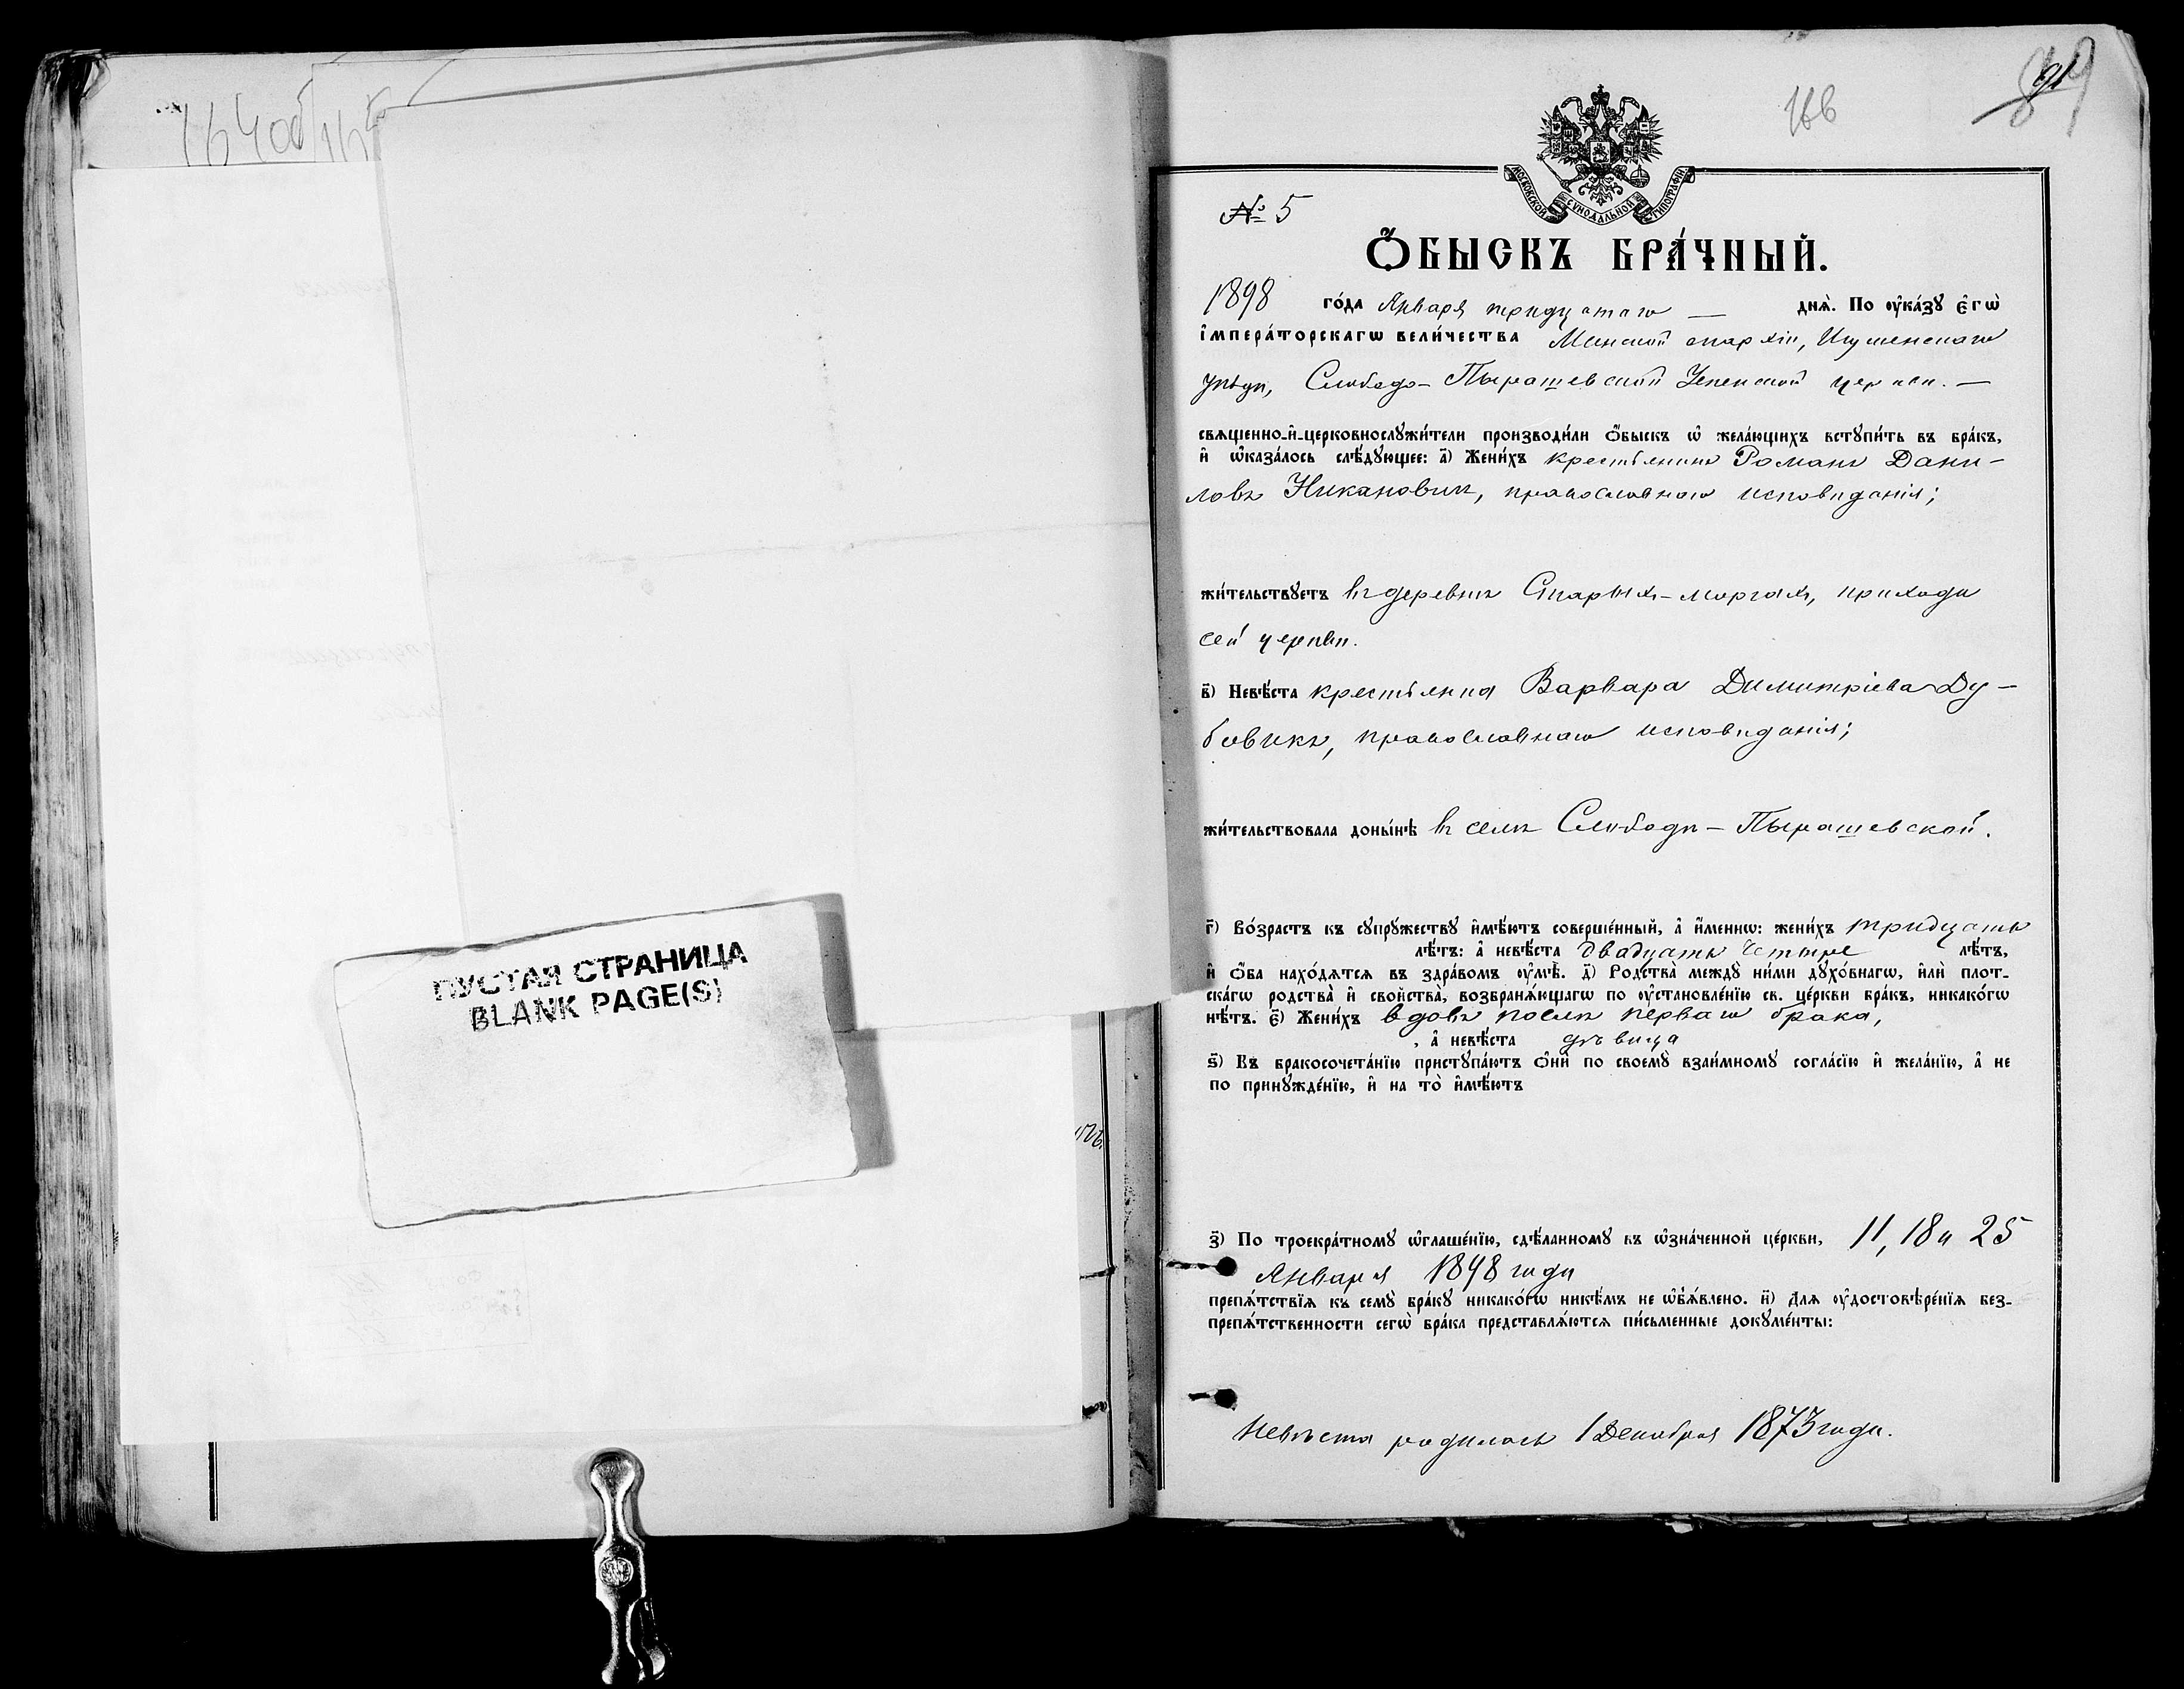 ПУСТАЯ СТРАНИЦА
BLANK PAGE(S)
166
89
91
МОСКОВСКОЙ СѴНОДАЛЬНОЙ ТИПОГРАФІИ
№ 5
Ѻ҆БЫСКЪ БРА́ЧНЫЙ.
1898 го́да Января тридцатаго — днѧ̀. По ᲂу҆ка́зꙋ є҆гѡ̀
і҆мпера́торскагѡ вели́чества Минской епархіи, Игуменскаго
уѣзда, Слободо-Пырашевской Успенской церкви. —
свѧщенно-и҆-церковнослꙋжи́тели производи́ли ѻ҆́быскъ ѡ҆ жела́ющихъ встꙋпи́ть въ бра́къ,
и҆ ѡ҆каза́лось слѣ́дꙋющее: а҃) Жени́хъ крестьянинъ Романъ Дани-
ловъ Никановичъ, православнаго исповѣданія;
жи́тельствꙋетъ въ деревнѣ Старыхъ-моргахъ, прихода
сей церкви.
в҃) Невѣ́ста крестьянка Варвара Димитріева Ду-
бовикъ, православнаго исповѣданія;
жи́тельствовала доны́нѣ въ селѣ Слободѣ-Пырашевской.
г҃) Во́зрастъ къ сꙋпрꙋ́жествꙋ и҆мѣ́ютъ соверше́нный, а҆ и҆́меннѡ: жени́хъ тридцать
лѣ́тъ: а҆ невѣ́ста двадцать четыре лѣ́тъ,
и҆ ѻ҆́ба нахо́дѧтсѧ въ здра́вомъ ᲂу҆мѣ̀. д҃) Родства̀ междꙋ̀ ни́ми дꙋхо́внагѡ, и҆лѝ плот-
ска́гѡ родства̀ и҆ свойства̀, возбранѧ́ющагѡ по ᲂу҆становле́нїю св. це́ркви бра́къ, никако́гѡ
нѣ́тъ. є҃) Жени́хъ вдовъ послѣ перваго брака,
, а҆ невѣ́ста дѣвица
ѕ҃) Къ бракосочета́нїю пристꙋпа́ютъ ѻ҆нѝ по своемꙋ̀ взаи́мномꙋ согла́сїю и҆ жела́нїю, а҆ не
по принꙋжде́нїю, и҆ на то̀ и҆мѣ́ютъ
з҃) По троекра́тномꙋ ѡ҆глаше́нїю, сдѣ́ланномꙋ въ ѡ҆зна́ченной це́ркви, 11, 18 и 25
Января 1898 года
препѧ́тствїѧ къ семꙋ̀ бра́кꙋ никако́гѡ никѣ́мъ не ѡ҆б̾ѧ́влено. и҃) Длѧ ᲂу҆достовѣре́нїѧ без-
препѧ́тственности сегѡ̀ бра́ка представлѧ́ютсѧ пи́сьменные докꙋме́нты:
Невѣста родилась 1 Декабря 1873 года.